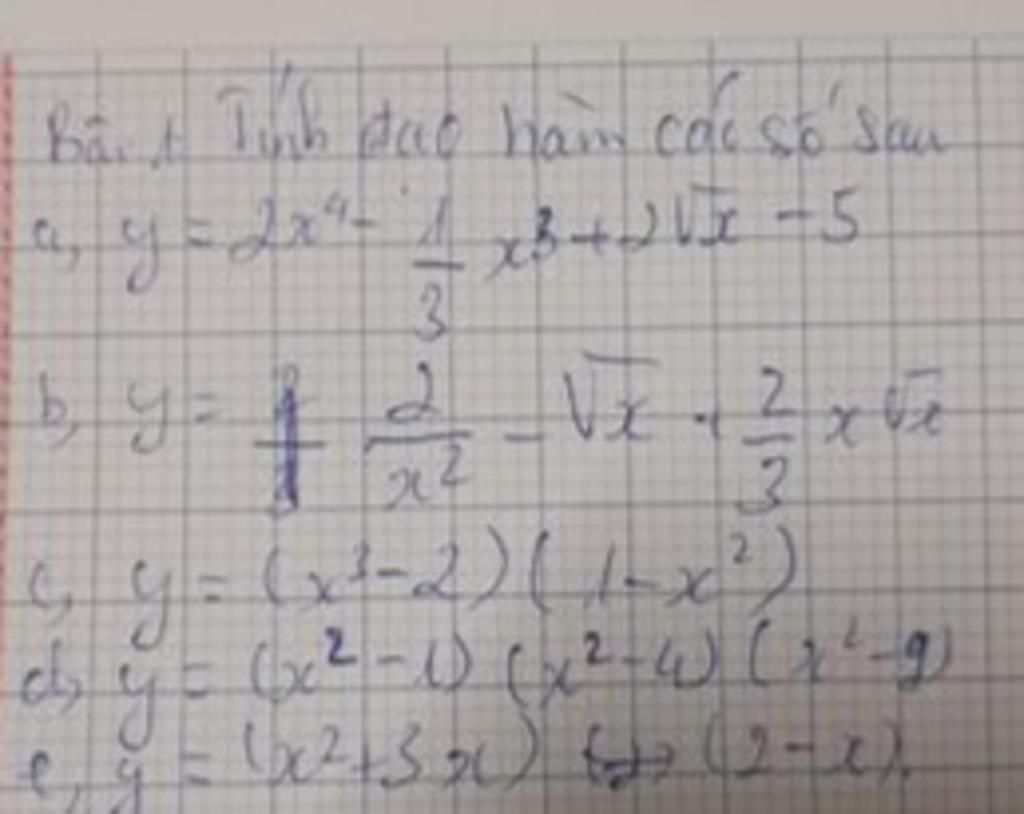 Bài 1 Tính đạo hàm các số sau
a, y = 2x⁴ - 1/3 x³ + 2√x - 5
b, y = 2/x² - √x + 2/3 x√x
c, y = (x³ - 2)(1 - x²)
d, y = (x² - 1)(x² - 4)(x² - 9)
e, y = (x² + 3x)(2 - x)